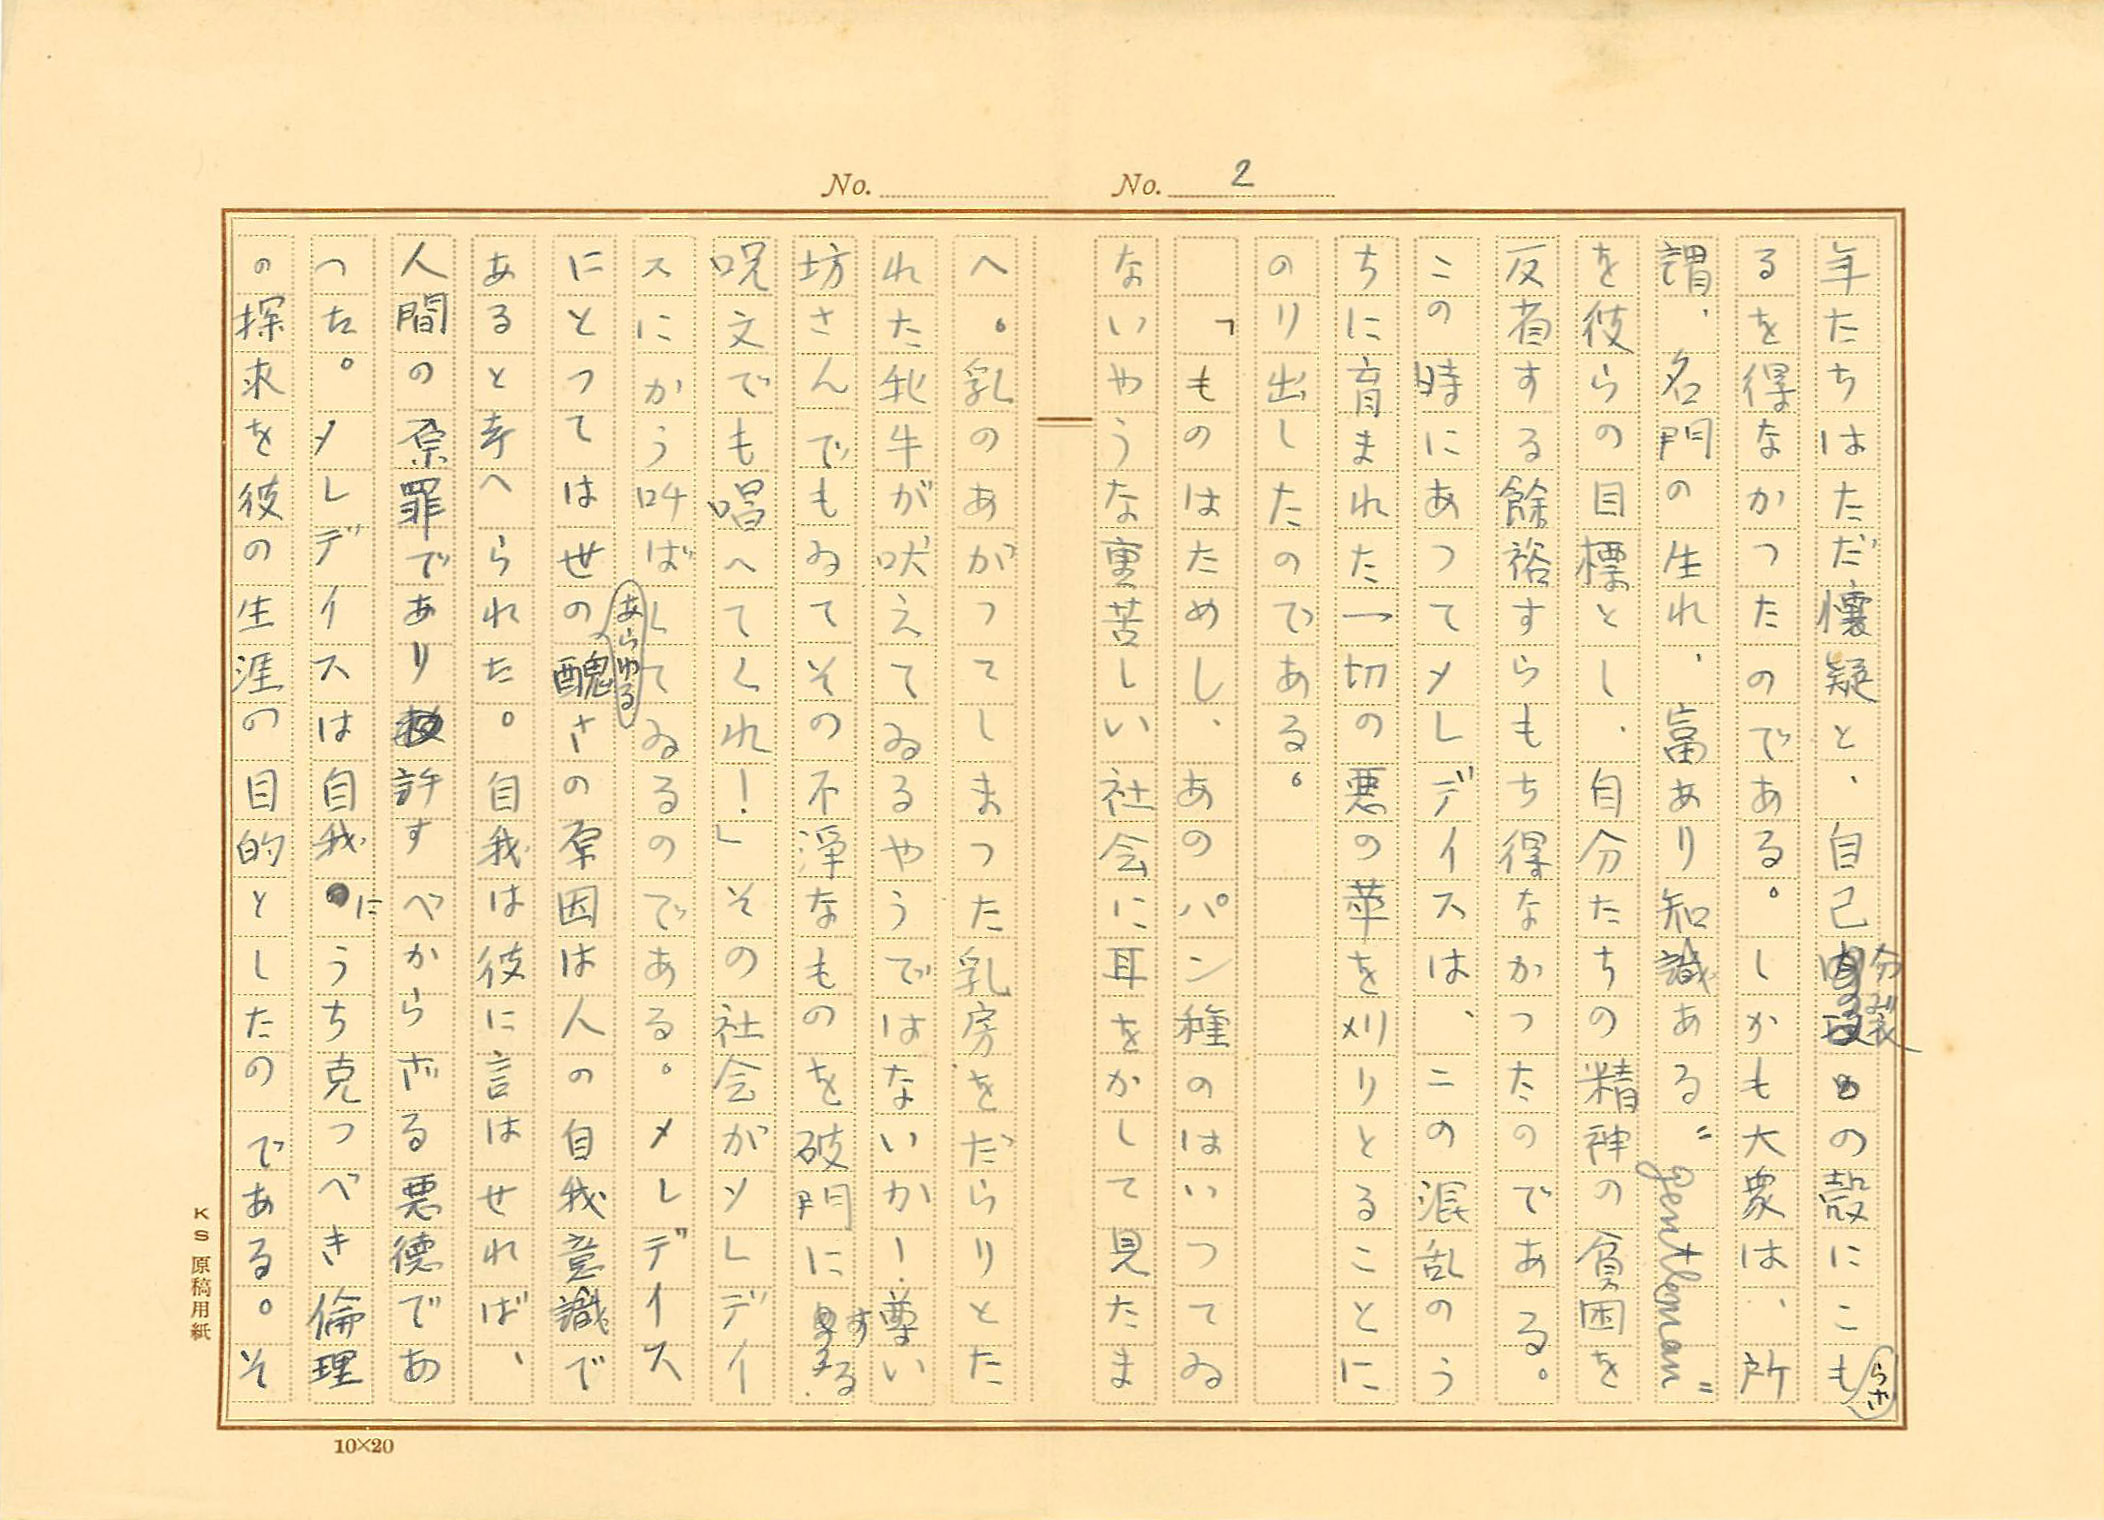 No. 2
年たちはただ懐疑と、自己分裂の殻にこもらざ
るを得なかつたのである。しかも大衆は、所
謂、名門の生れ、富あり知識ある〝gentleman〟
を彼らの目標とし、自分たちの精神の貧困を
反省する餘裕すらもち得なかつたのである。
この時にあつてメレデイスは、この混乱のう
ちに育まれた一切の悪の華を刈りとることに
のり出したのである。
「ものはためし、あのパン種のはいつてゐ
ないやうな重苦しい社会に耳をかして見たま
No.
へ。乳のあがつてしまつた乳房をだらりとた
れた牝牛が吠えてゐるやうではないかー.尊い
坊さんでもゐてその不淨なものを破門にする
呪文でも唱へてくれ!」その社会がメレデイ
スにかう叫ばしてゐるのである。メレデイス
にとつては世のあらゆる醜さの原因は人の自我意識で
あると考へられた。自我は彼に言はせれば、
人間の原罪であり許すべからざる悪徳であ
つた。メレデイスは自我にうち克つべき倫理
の探求を彼の生涯の目的としたのである。そ
KS 原稿用紙
10×20